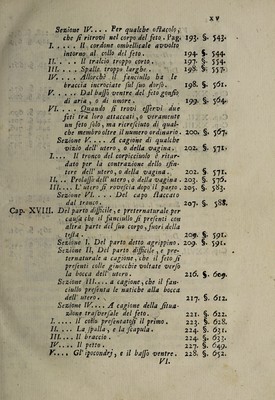 XV
Sezione IV.... Per qualche ostacolo,
che si ritrovi nel corpo del feto. Pag. 193. §. 543.
I..... Il cordone ombellicale avvolto
intorno al collo del feto. 194. §. 544.
II.... Il tralcio troppo corto. 197. §. 554.
III... Spalle troppo larghe. 198. §. 557.
IV.... Allorchè il fanciullo ha le
braccia incrociate sul suo dorso. 198. §. 561.
V.... Dal basso ventre del feto gonfio
di aria, o di umore. 199. §. 564.
VI... Quando si trovi esservi due
feti tra loro attaccati, o veramente
un feto solo, ma ricresciuto di qual-
che membro oltre il numero ordinario. 200. §. 567.
Sezione V.... A cagione di qualche
vizio dell' utero, o della vagina. 202. §. 571.
I..... Il tronco del corpicciuolo è ritar-
dato per la contrazione dello sfin-
tere dell' utero, o della vagina. 202. §. 571.
II... Prolasso dell' utero, o della vagina. 203. §. 576.
III... L' utero si rovescia dopo il parto. 205. §. 583.
Sezione VI.... Del capo staccato
dal tronco. 207. §. 588.
Cap. XVIII. Del parto difficile, e preternaturale per
causa che il fanciullo si presenti con
altra parte del suo corpo, fuori della
testa. 209. §. 591.
Sezione I. Del parto detto agrippino. 209. §. 591.
Sezione II. Del parto difficile, e pre-
ternaturale a cagione, che il feto si
presenti colle ginocchia voltate verso
la bocca dell' utero. 216. §. 609.
Sezione III.... a cagione, che il fan-
ciullo presenta le natiche alla bocca
dell' utero. 217. §. 612.
Sezione IV.... A cagione della situa-
zione trasversale del feto. 221. §. 622.
I..... Il collo presentatosi il primo. 223. §. 628.
II.... La spalla, e la scapula. 224. §. 631.
III.... Il braccio. 224. §. 633.
IV.... Il petto. 227. §. 649.
V..... Gl' ipocondrj, e il basso ventre. 228. §. 652.
VI.